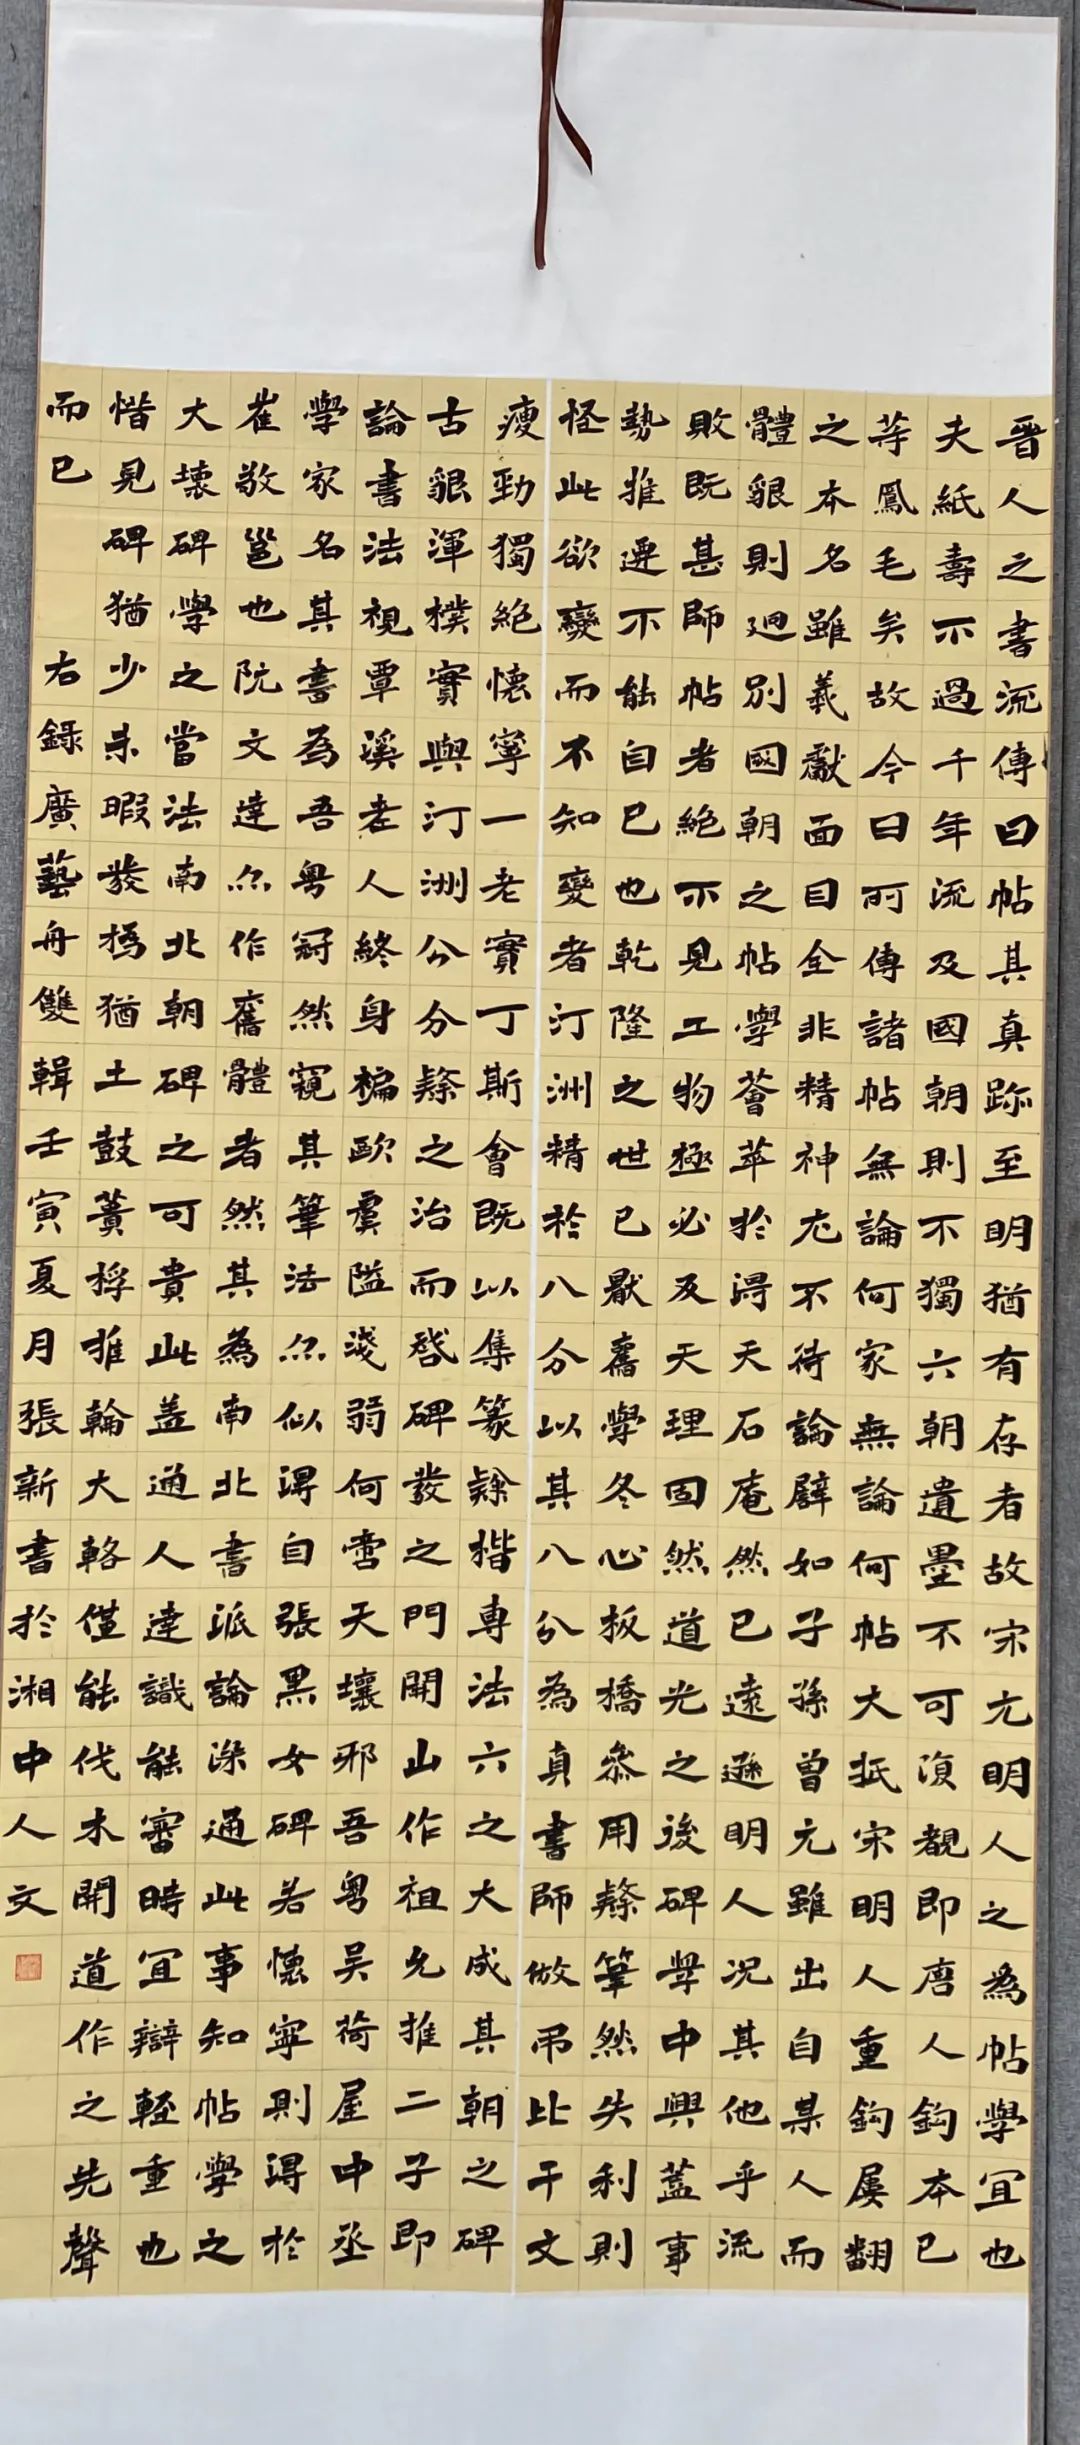 晉人之書流傳曰帖其真跡至明猶有存者故宋元明人之為帖學宜也
夫紙壽不過千年流及國朝則不獨六朝遺墨不可復覩即唐人鈎本已
等鳳毛矣故今日所傳諸帖無論何家無論何帖大抵宋明人重鈎屢翻
之本名雖羲獻面目全非精神尤不待論譬如子孫曾元雖出自某人而
體貌則迥別國朝之帖學薈萃於得天石庵然已遠遜明人況其他乎流
敗既甚師帖者絕不見工物極必反天理固然道光之後碑學中興蓋事
勢推遷不能自已也乾隆之世已厭舊學冬心板橋參用隸筆然失利則
怪此欲變而不知變者汀洲精於八分以其八分為真書師倣吊比干文
瘦勁獨絕懷寧一老實丁斯會既以集篆隸楷專法六之大成其朝之碑
古貌渾樸實與汀洲分分隸之治而啟碑發之門開山作祖允推二子即
論書法視覃溪老人終身褊歐虞隘淺弱何啻天壤邪吾粵吳荷屋中丞
學家名其書為吾粵冠然窺其筆法亦似得自張黑女碑若懷寧則得於
崔敬邕也阮文達亦作舊體者然其為南北書派論深通此事知帖學之
大壞碑學之當法南北朝碑之可貴此蓋通人達識能審時宜辯輕重也
惜見碑猶少未暇發撝猶土鼓蕢桴椎輪大輅僅能伐木開道作之先聲
而已 右錄廣藝舟雙輯壬寅夏月張新書於湘中人文